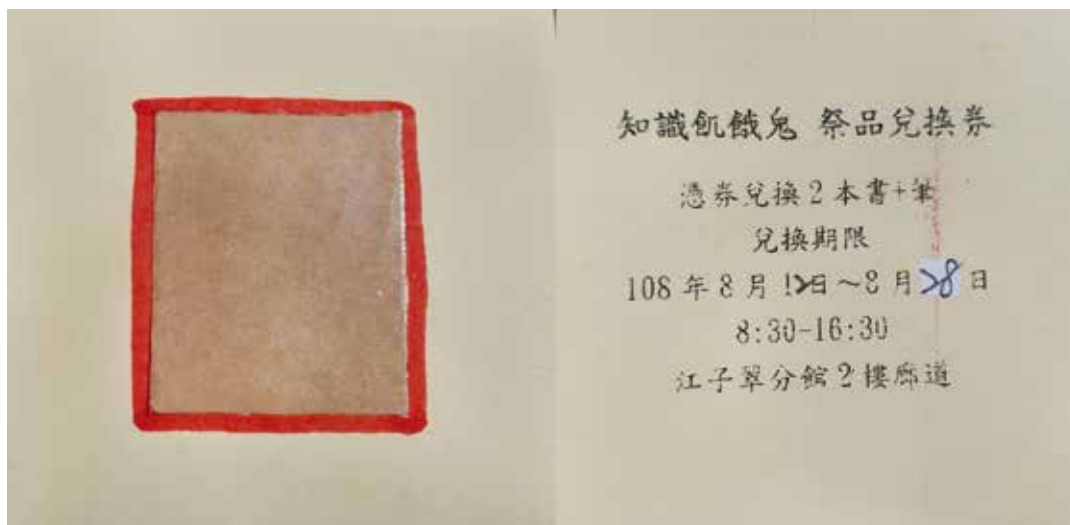 知識飢餓鬼 祭品兌換券
憑券兌換2本書+筆
兌換期限
108年8月12日~8月28日
8:30-16:30
江子翠分館2樓廊道